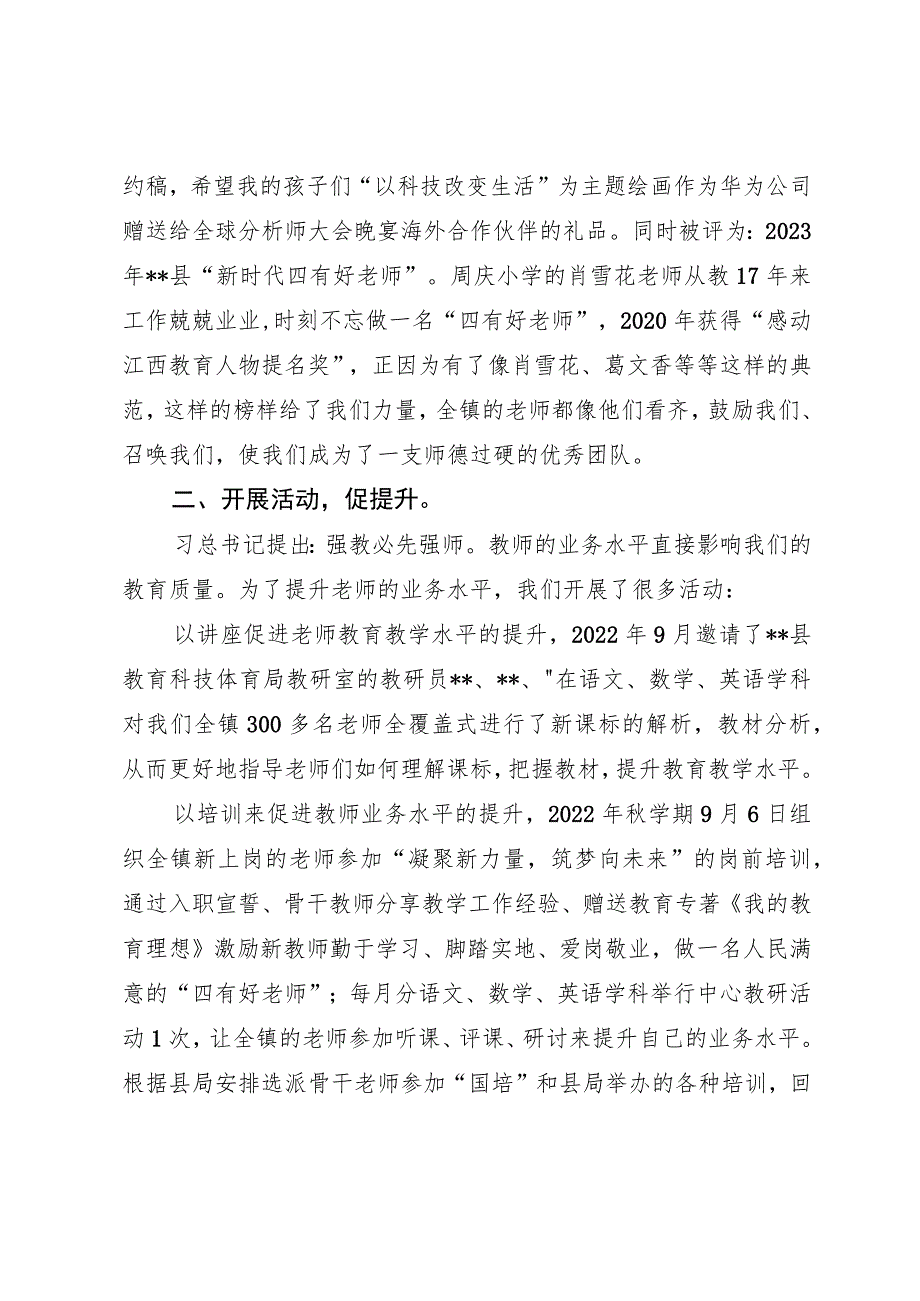 约稿，希望我的孩子们“以科技改变生活”为主题绘画作为华为公司
赠送给全球分析师大会晚宴海外合作伙伴的礼品。同时被评为：2023
年**县“新时代四有好老师”。周庆小学的肖雪花老师从教 17 年来
工作兢兢业业,时刻不忘做一名“四有好老师”，2020 年获得“感动
江西教育人物提名奖”，正因为有了像肖雪花、葛文香等等这样的典
范，这样的榜样给了我们力量，全镇的老师都像他们看齐，鼓励我们、
召唤我们，使我们成为了一支师德过硬的优秀团队。
二、开展活动，促提升。
习总书记提出：强教必先强师。教师的业务水平直接影响我们的
教育质量。为了提升老师的业务水平，我们开展了很多活动：
以讲座促进老师教育教学水平的提升，2022 年 9 月邀请了**县
教育科技体育局教研室的教研员**、**、"在语文、数学、英语学科
对我们全镇 300 多名老师全覆盖式进行了新课标的解析，教材分析，
从而更好地指导老师们如何理解课标，把握教材，提升教育教学水平。
以培训来促进教师业务水平的提升，2022 年秋学期 9 月 6 日组
织全镇新上岗的老师参加“凝聚新力量，筑梦向未来”的岗前培训，
通过入职宣誓、骨干教师分享教学工作经验、赠送教育专著《我的教
育理想》激励新教师勤于学习、脚踏实地、爱岗敬业，做一名人民满
意的“四有好老师”；每月分语文、数学、英语学科举行中心教研活
动 1 次，让全镇的老师参加听课、评课、研讨来提升自己的业务水平。
根据县局安排选派骨干老师参加“国培”和县局举办的各种培训，回